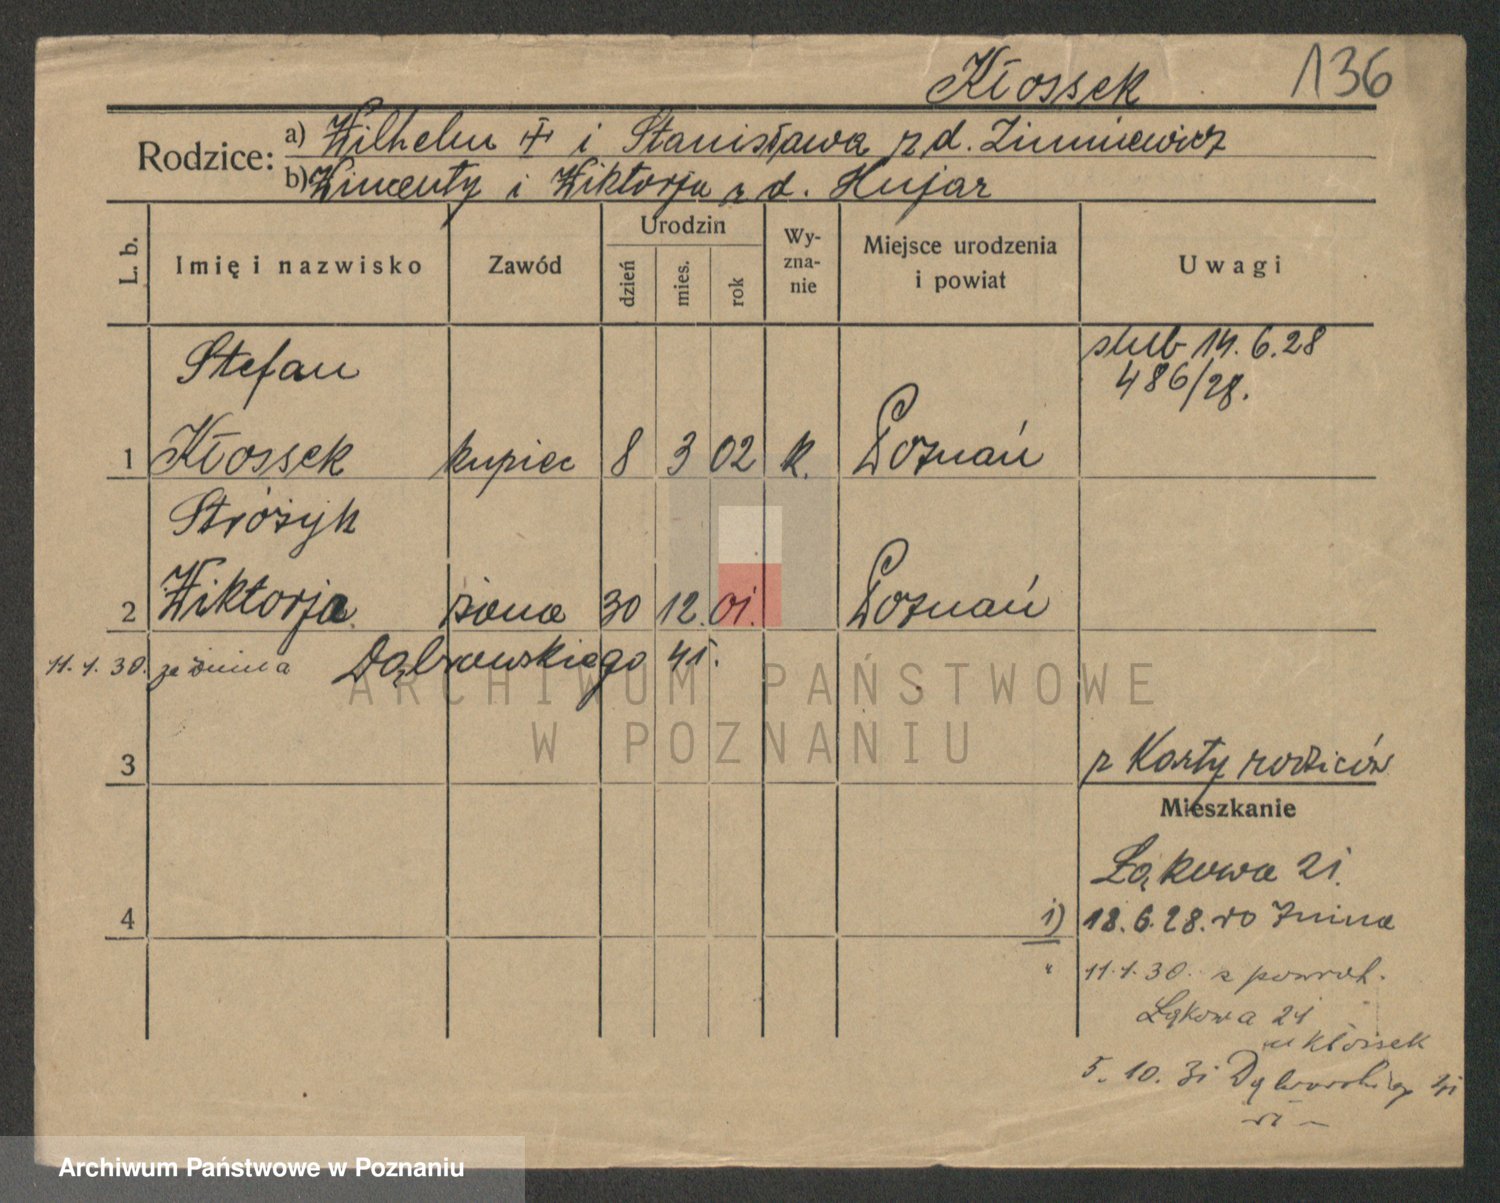 Kłossek 136
Rodzice: a) Wilhelm i Stanisława z d. Zimniewicz
b) Wincenty i Wiktorja z d. Hujar
L. b. Imię i nazwisko Zawód Urodzin dzień mies. rok Wy-zna-nie Miejsce urodzenia i powiat Uwagi
ślub 14.6.28
486/28.
Stefan
1 Kłossek kupiec 8 3 02 k. Poznań
Stróżyk
2 Wiktorja żona 30 12. 01. Poznań
11.1.30. ze Żnina Dąbrowskiego 41.
ARCHIWUM PAŃSTWOWE
W POZNANIU
3 z Karty rodziców
Mieszkanie
Łąkowa 21.
4 1) 18.6.28. do Żnina
" 11.1.30. z powrot.
Łąkowa 21
u Kłossek
5.10.31 Dąbrowskiego 41
Archiwum Państwowe w Poznaniu